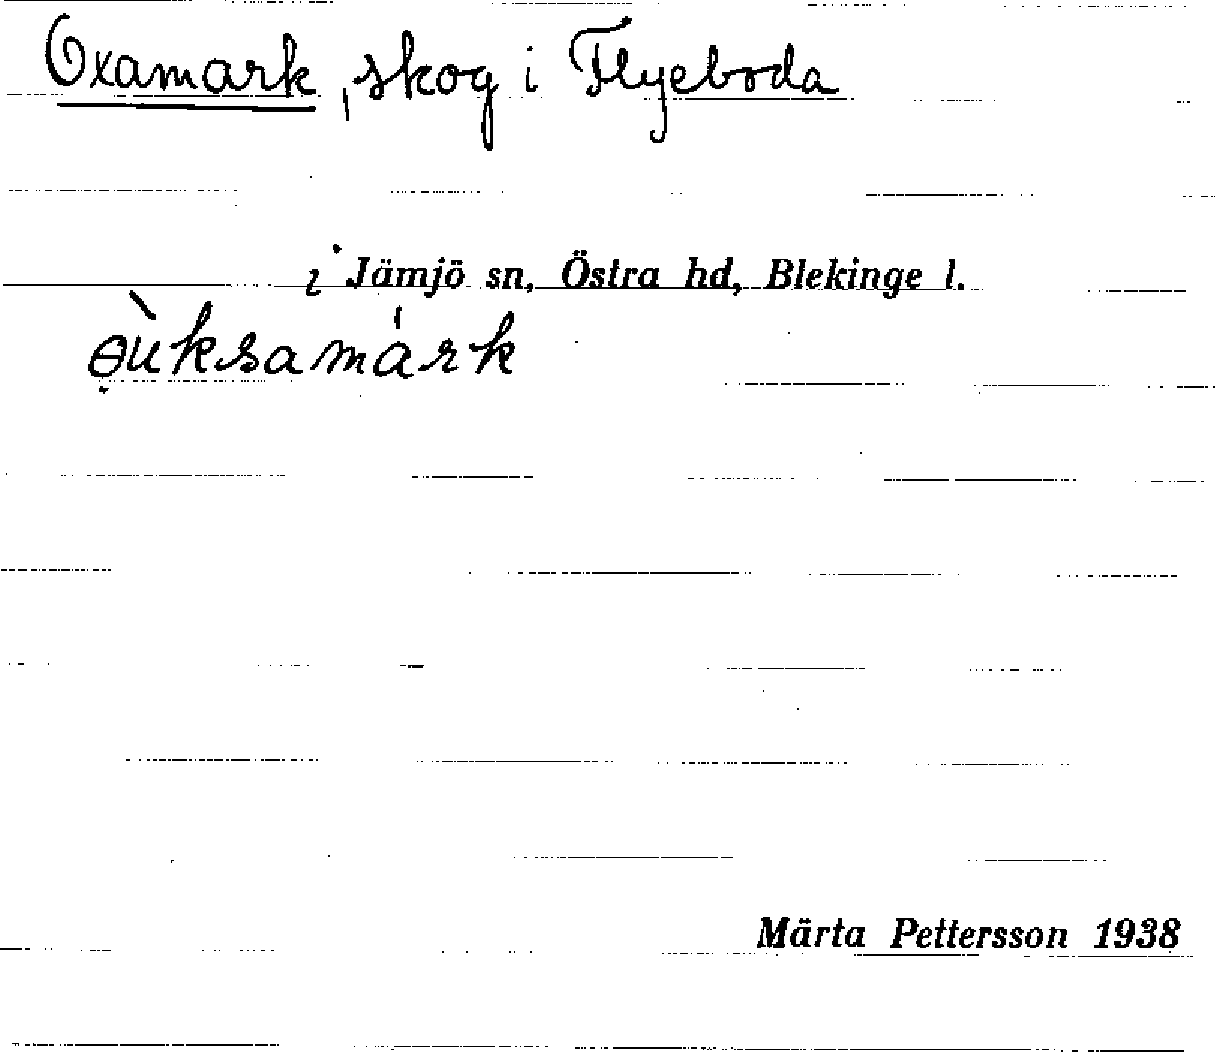 Oxamark, skog i Flyeboda
i Jämjö sn, Östra hd, Blekinge l.
ɵ̣ùksamárk
Märta Pettersson 1938